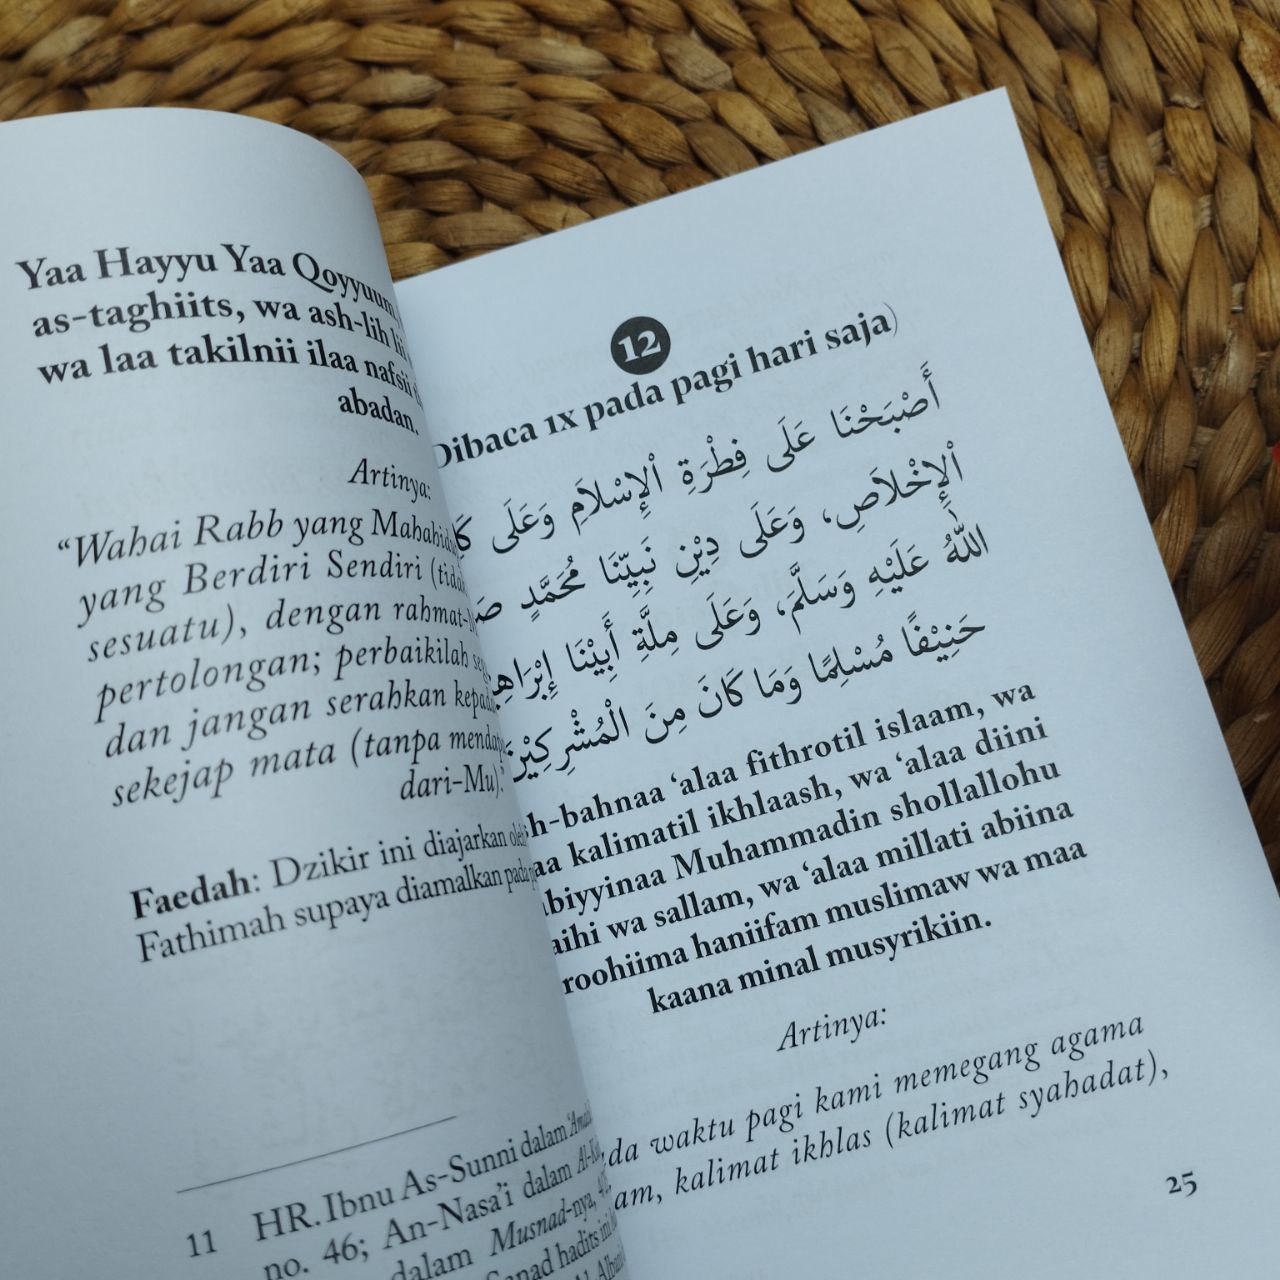 Yaa Hayyu Yaa Qoyyuum
as-taghiits, wa ash-lih lii
wa laa takilnii ilaa nafsii
abadan.
Artinya:
“Wahai Rabb yang
yang Berdiri Sendiri
sesuatu), dengan
pertolongan; perbaikilah
dan jangan serahkan
sekejap mata (tanpa
dari-Mu).”
Faedah: Dzikir ini diajarkan
Fathimah supaya diamalkan pada
11 HR. Ibnu As-Sunni dalam
no. 46; An-Nasa’i dalam
dalam Musnad-nya,
hadits ini
12
Dibaca 1x pada pagi hari saja)
أَصْبَحْنَا عَلَى فِطْرَةِ اْلإِسْلاَمِ وَعَلَى
اْلإِخْلاَصِ، وَعَلَى دِيْنِ نَبِيِّنَا مُحَمَّدٍ
اللَّهُ عَلَيْهِ وَسَلَّمَ، وَعَلَى مِلَّةِ أَبِيْنَا
حَنِيْفًا مُسْلِمًا وَمَا كَانَ مِنَ الْمُشْرِكِيْنَ
‘alaa fithrotil islaam, wa
kalimatil ikhlaash, wa ‘alaa diini
Muhammadin shollallohu
wa sallam, wa ‘alaa millati abiina
haniifam muslimaw wa maa
kaana minal musyrikiin.
Artinya:
waktu pagi kami memegang agama
kalimat ikhlas (kalimat syahadat),
25